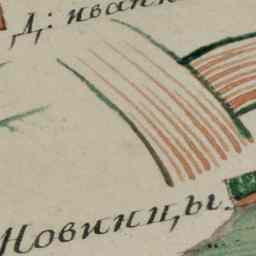 Д: иванк
Новинцы.